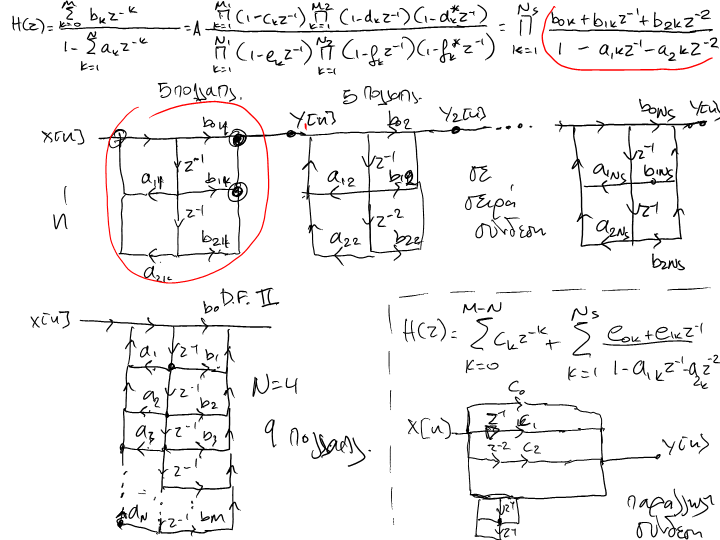 H(z) = \frac{\sum_{k=0}^{M} b_k z^{-k}}{1 - \sum_{k=1}^{N} a_k z^{-k}} = A \frac{\prod_{k=1}^{M_1} (1-c_k z^{-1}) \prod_{k=1}^{M_2} (1-d_k z^{-1})(1-d_k^* z^{-1})}{\prod_{k=1}^{N_1} (1-e_k z^{-1}) \prod_{k=1}^{N_2} (1-f_k z^{-1})(1-f_k^* z^{-1})} = \prod_{k=1}^{N_s} \frac{b_{0k}+b_{1k}z^{-1}+b_{2k}z^{-2}}{1-a_{1k}z^{-1}-a_{2k}z^{-2}}
5 πολλαπλ. 5 πολλαπλ.
x[n] b_{01} y_1[n] b_{02} y_2[n] b_{0Ns} y[n]
z^{-1} z^{-1} z^{-1}
a_{1k} b_{1k} a_{12} b_{12} a_{1Ns} b_{1Ns}
ή
z^{-1} z^{-2} z^{-1}
a_{21k} b_{21k} a_{22} b_{22} a_{2Ns} b_{2Ns}
σε
σειρά
σύνδεση
b_0 D.F. II
x[n]
a_1 z^{-1} b_1
a_2 z^{-1} b_2
a_3 z^{-1} b_3
z^{-1}
a_N z^{-1} b_M
N=4
9 πολλαπλ.
H(z) = \sum_{k=0}^{M-N} c_k z^{-k} + \sum_{k=1}^{N_s} \frac{e_{0k}+e_{1k}z^{-1}}{1-a_{1k}z^{-1}-a_{2k}z^{-2}}
c_0
x[n] z^{-1} c_1
z^{-2} c_2 y[n]
z^{-1}
z^{-1}
παράλληλη
σύνδεση